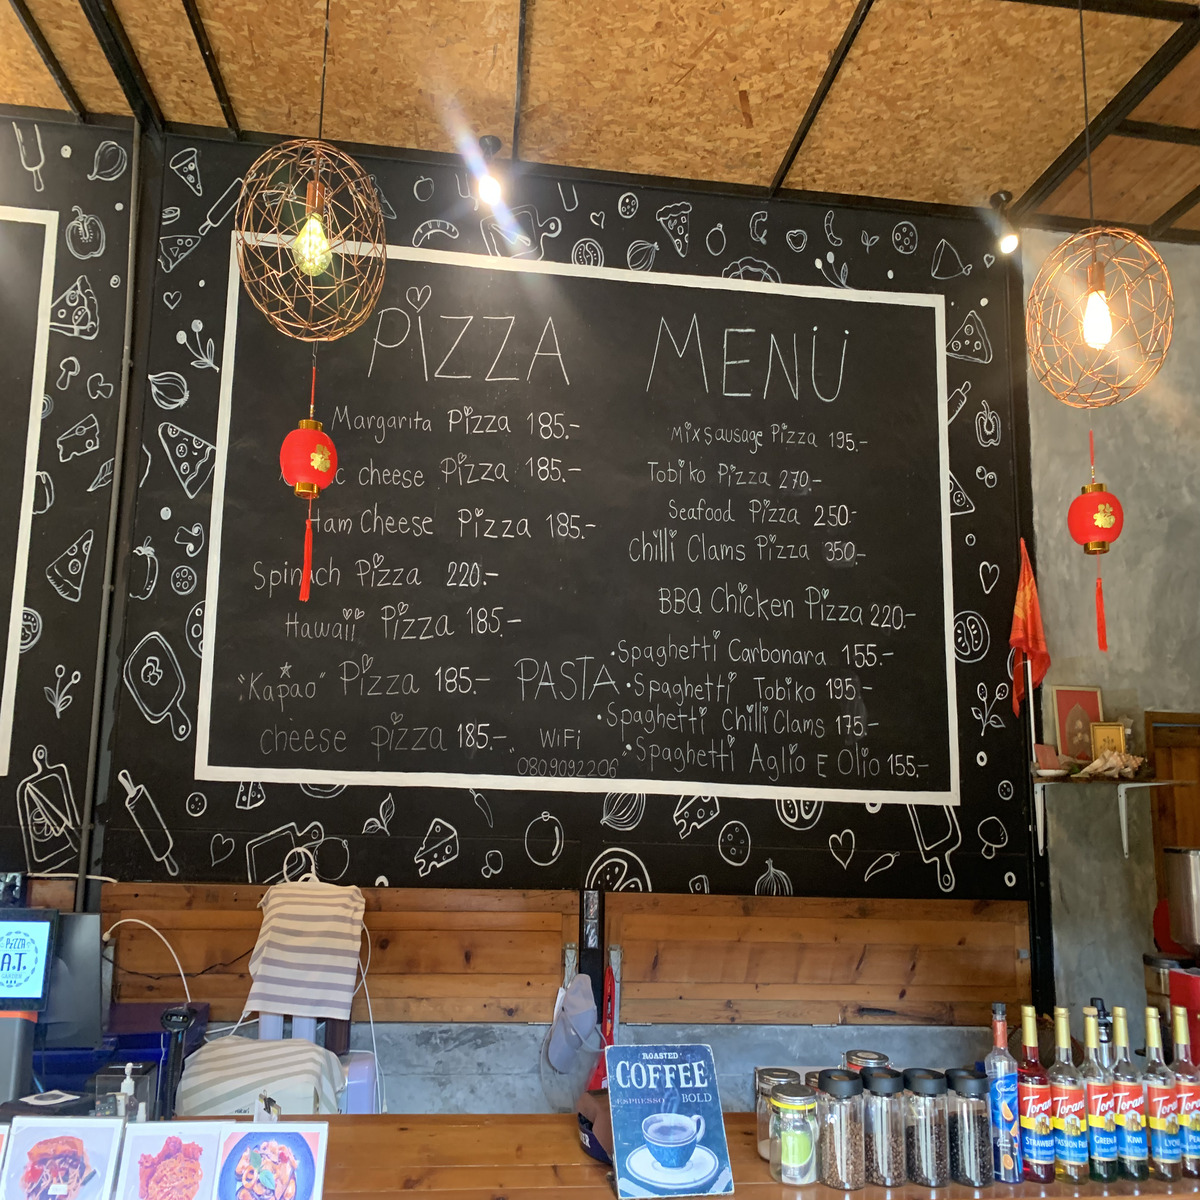 PIZZA MENU
Margarita Pizza 185.-
cheese Pizza 185.-
Ham Cheese Pizza 185.-
Spinach Pizza 220.-
Hawaii Pizza 185.-
"Kapao" Pizza 185.-
cheese pizza 185.-
Mix Sausage Pizza 195.-
Tobiko Pizza 270.-
Seafood Pizza 250.-
Chilli Clams Pizza 350.-
BBQ Chicken Pizza 220.-
PASTA
·Spaghetti Carbonara 155.-
·Spaghetti Tobiko 195.-
·Spaghetti Chilli Clams 175.-
·Spaghetti Aglio E Olio 155.-
WiFi
0809092206
PIZZA
A.T.
ROASTED
COFFEE
ESPRESSO BOLD
Torani
STRAWBERRY
Torani
PASSION FRUIT
Torani
GREEN
Torani
KIWI
Torani
Torani